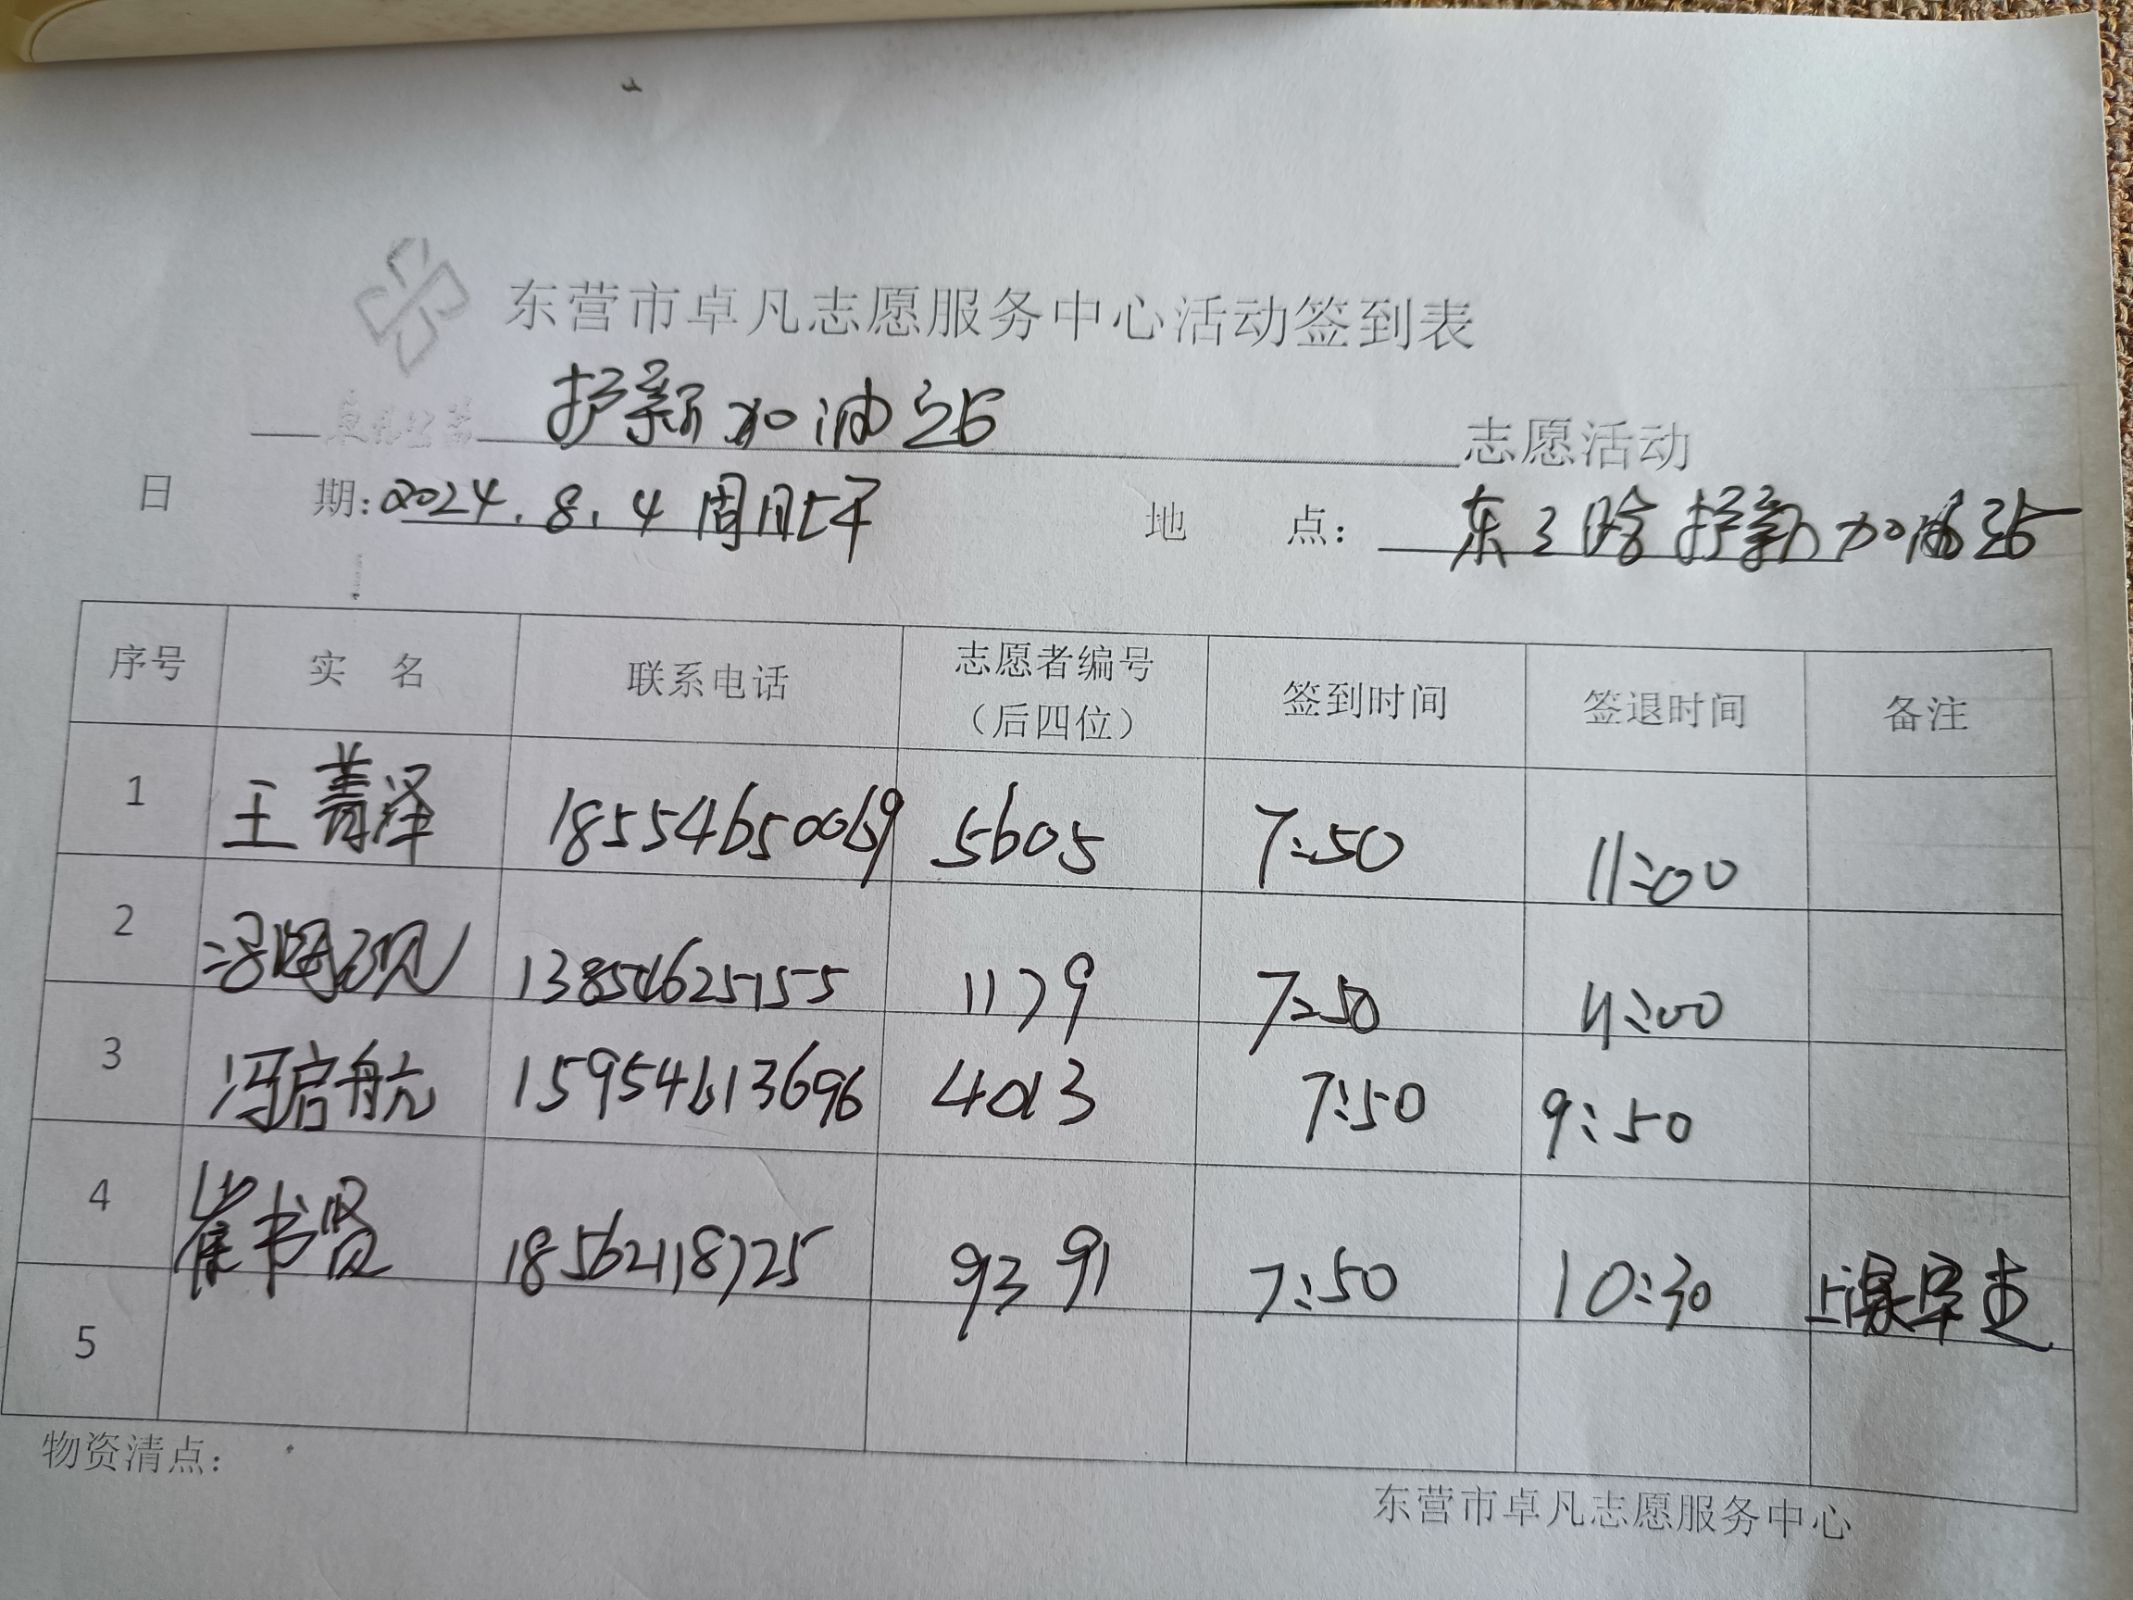 东营市卓凡志愿服务中心活动签到表
护新加油站 志愿活动
日 期: 2024.8.4 周日上午 地 点: 东三路护新加油站
序号 实 名 联系电话 志愿者编号（后四位） 签到时间 签退时间 备注
1 王菁泽 18554650069 5605 7:50 11:00
2 13854625155 1179 7:50 11:00
3 冯启航 15954613696 4013 7:50 9:50
4 崔书贤 18562118725 9391 7:50 10:30 上课早走
5
物资清点:
东营市卓凡志愿服务中心